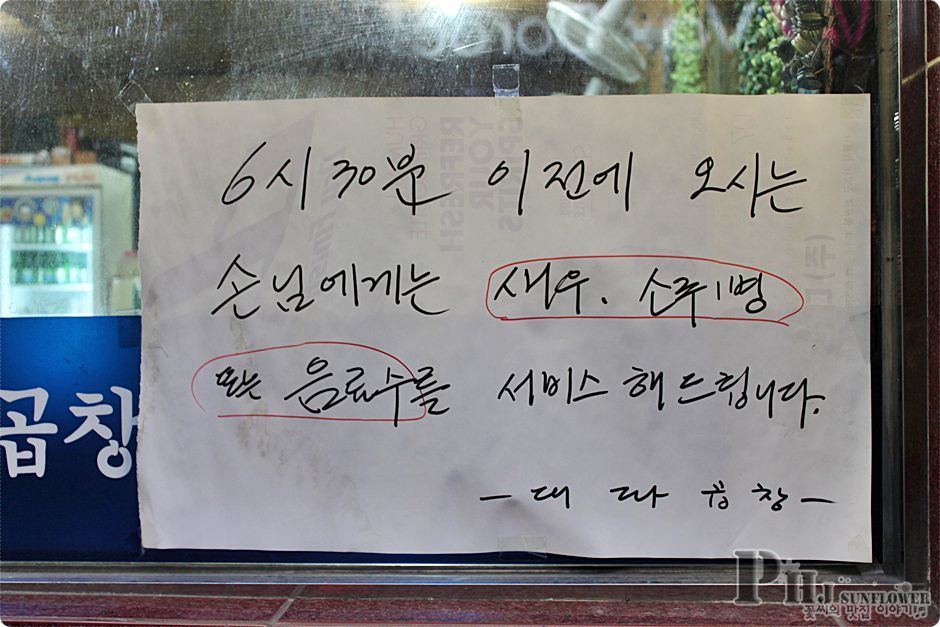 6시 30분 이전에 오시는
손님에게는 새우. 소주1병
또는 음료수를 서비스 해드립니다.
- 대 따 곱창 -
곱창
PHJ
SUNFLOWER
꽃씨의 맛집 이야기